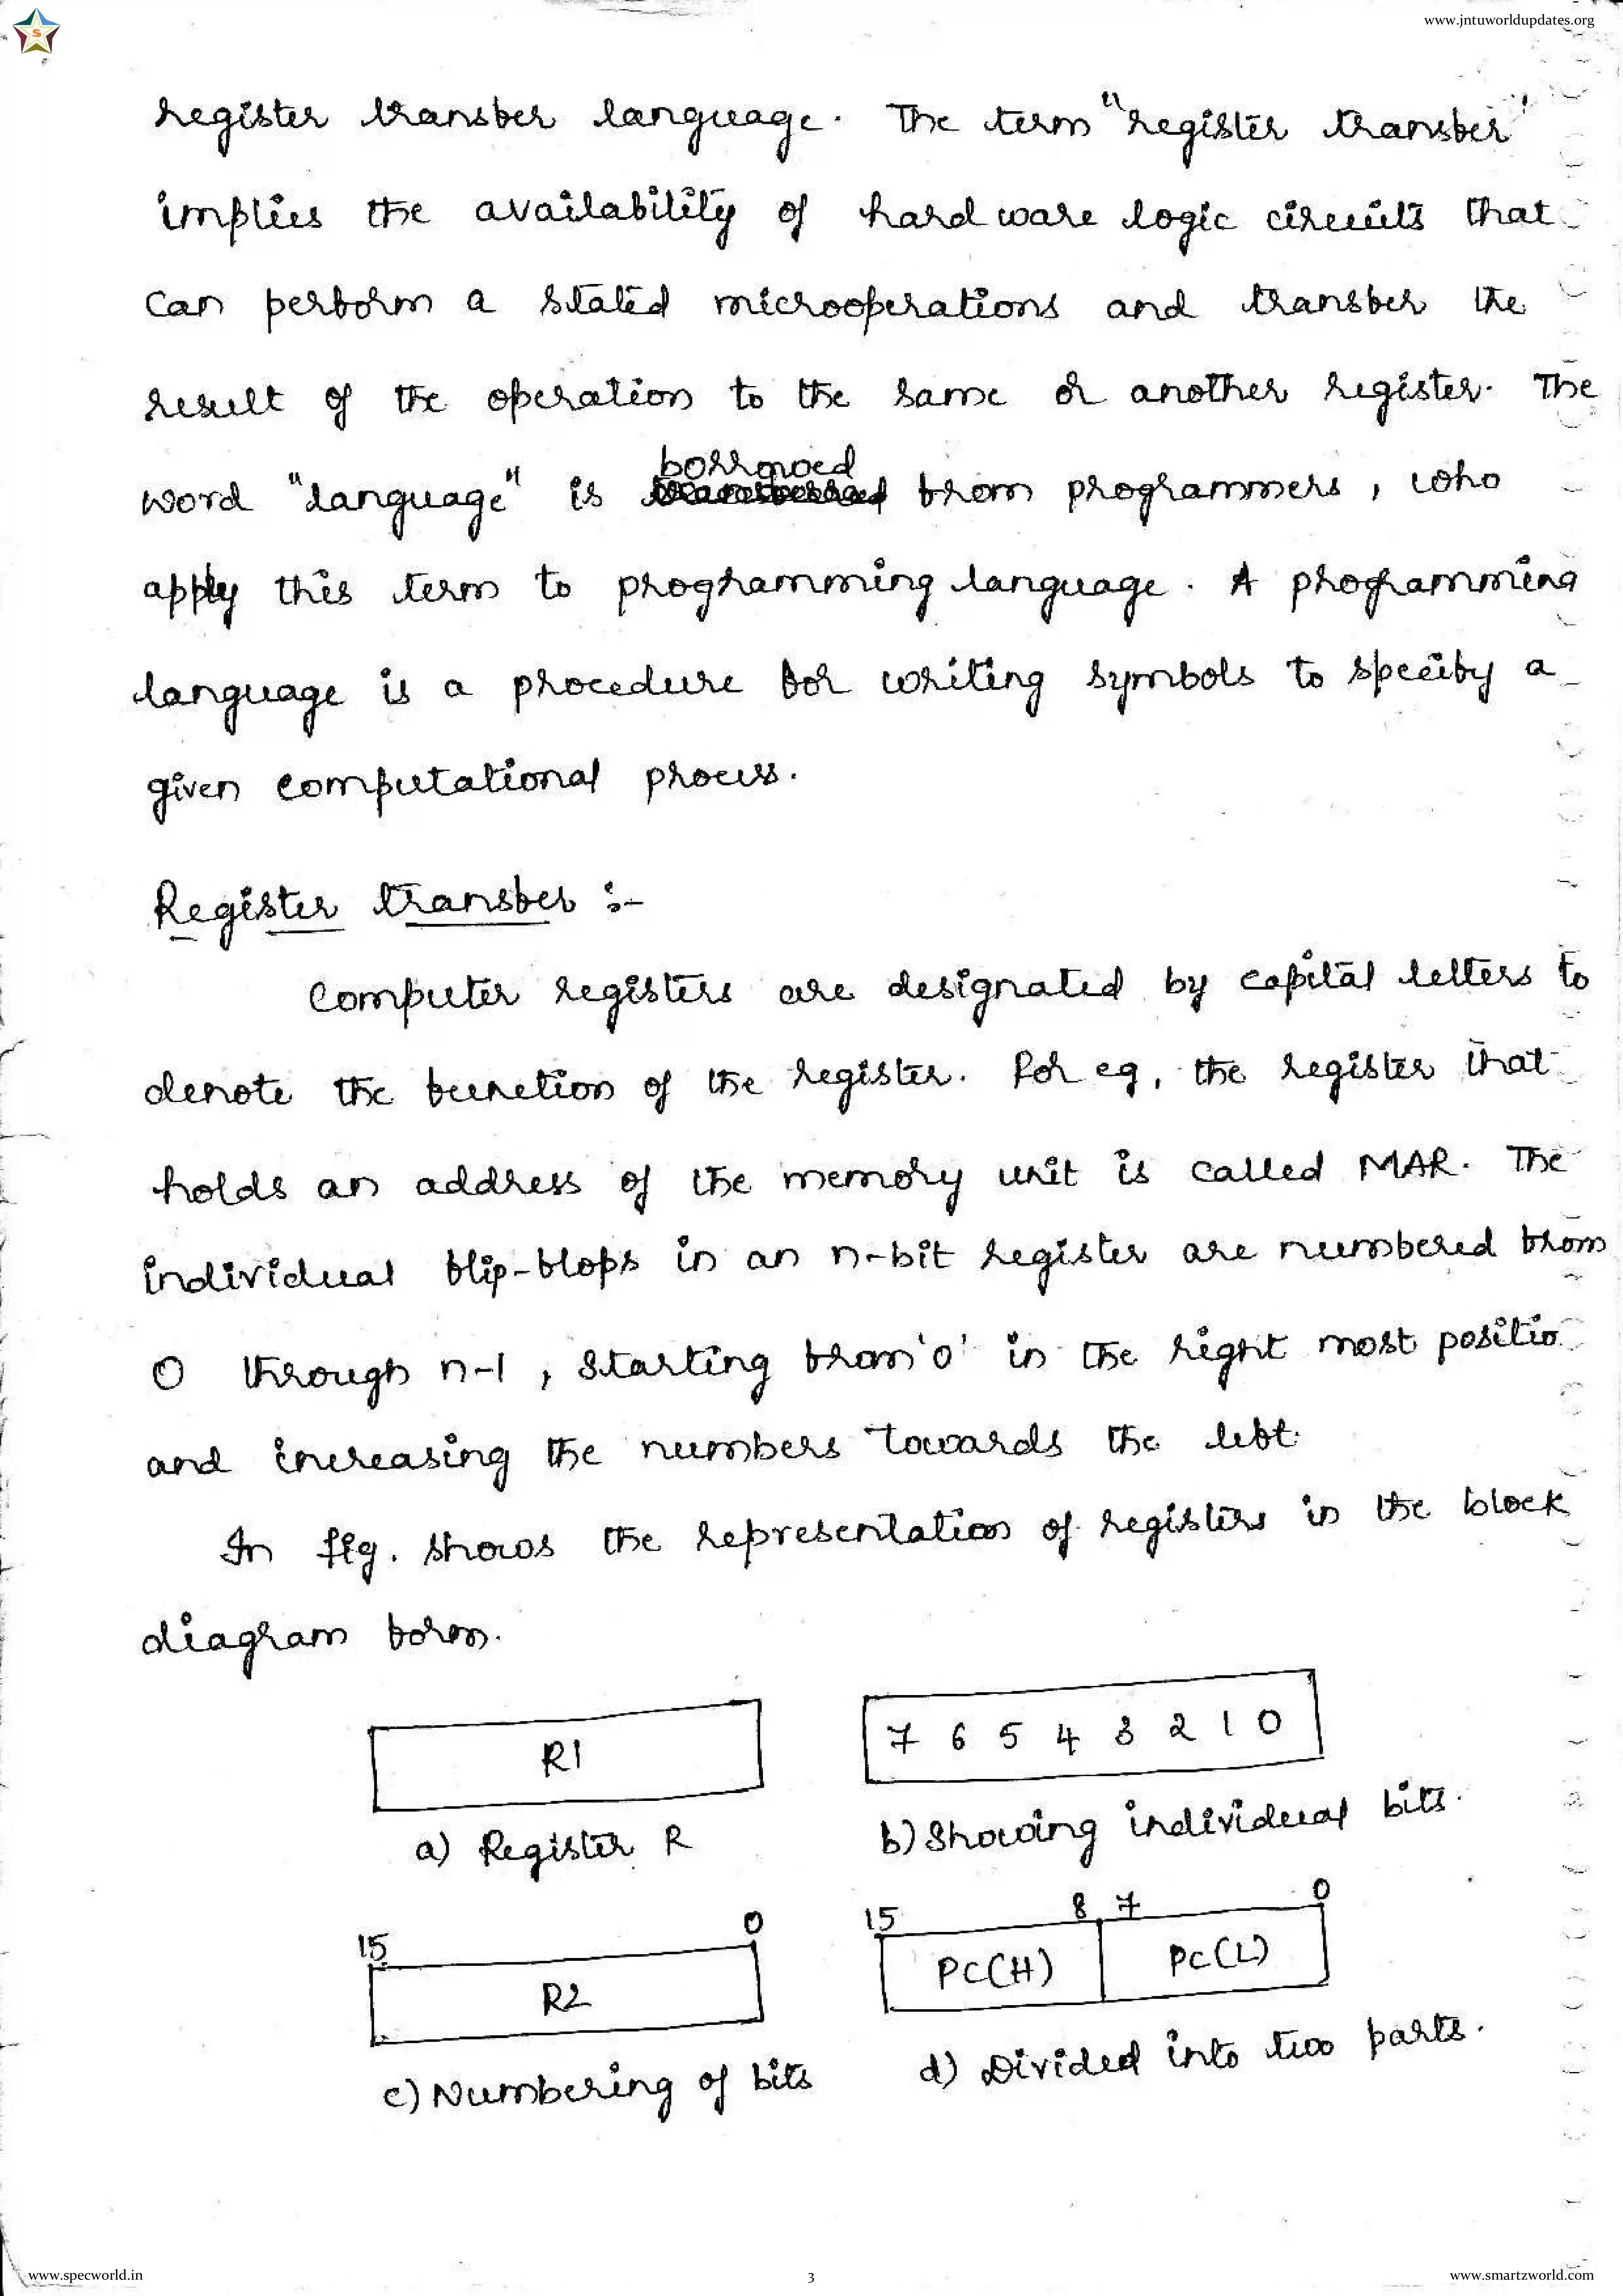 www.jntuworldupdates.org
S
register transfer language. The term "register transfer"
implies the availability of hardware logic circuits that
can perform a stated microoperations and transfer the
result of the operation to the same or another register. The
borrowed
word "language" is from programmers, who
apply this term to programming language. A programming
language is a procedure for writing symbols to specify a
given computational process.
Register transfer :-
Computer registers are designated by capital letters to
denote the function of the register. For eg, the register that
holds an address of the memory unit is called MAR. The
individual flip-flops in an n-bit register are numbered from
0 through n-1, starting from '0' in the right most positio
and increasing the numbers towards the left.
In fig. shows the representation of registers in the block
diagram form.
R1
7 6 5 4 3 2 1 0
a) Register R
b) Showing individual bits.
15 0
R2
15 8 7 0
PC(H) PC(L)
c) Numbering of bits
d) Divided into two parts.
www.specworld.in
3
www.smartzworld.com